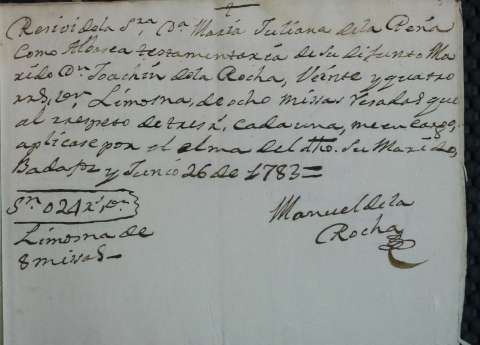 Resivi de la S.ra D.a Maria Juliana de la Peña
Como Albasea testamentaria de su difunto Ma
rido D.n Joachin de la Rocha, Veinte y quatro
rr.s v.on Limosna, de ocho missas resadas que
al respeto de tres r.s cada una, me encargo,
aplicase por el alma del dho. su Marido,
Badajoz y Junio 26 de 1783 =
Son 024 r.s v.on
Limosna de
8 missas
Manuel de la
Rocha